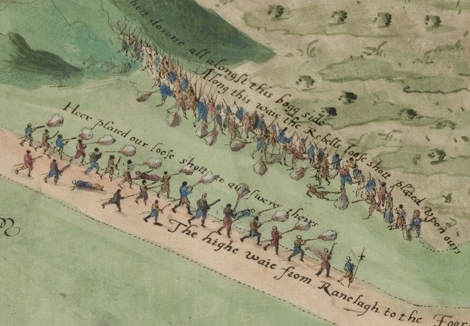 their devorce all alongst this bogg side
Along this waie the Rebells loose shott placed upon ours
Heer placed our loose shott to answere theirs
The highe waie from Ranelagh to the Foor